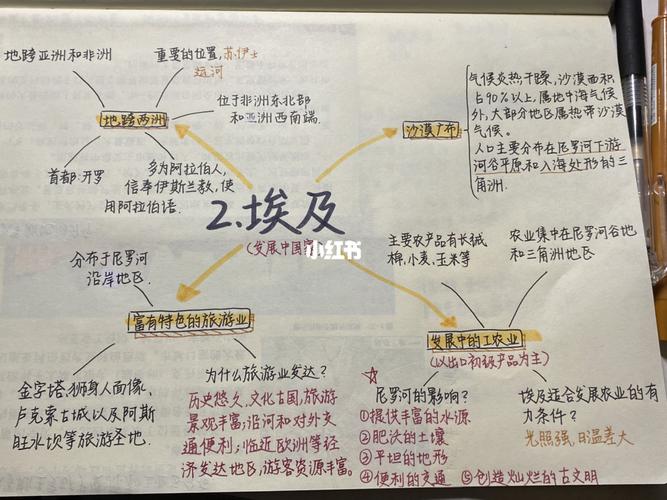 地跨亚洲和非洲
重要的位置,苏伊士
运河
位于非洲东北部
和亚洲西南端.
地跨两洲
首都:开罗
多为阿拉伯人,
信奉伊斯兰教,使
用阿拉伯语.
沙漠广布
气候炎热干燥,沙漠面积
占90%以上,属地中海气候
外,大部分地区属热带沙漠
气候。
人口主要分布在尼罗河下游
河谷平原和入海处形的三
角洲.
2.埃及
(发展中国家)
小红书
分布于尼罗河
沿岸地区
富有特色的旅游业
金字塔,狮身人面像,
卢克索古城以及阿斯
旺水坝等旅游圣地.
为什么旅游业发达?
历史悠久,文化古国,旅游
景观丰富;沿河和对外交
通便利;临近欧洲等经
济发达地区,游客资源丰富.
主要农产品有长绒
棉,小麦,玉米等
农业集中在尼罗河谷地
和三角洲地区
发展中的工农业
(以出口初级产品为主)
尼罗河的影响?
①提供丰富的水源
②肥沃的土壤
③平坦的地形
④便利的交通 ⑤创造灿烂的古文明
埃及适合发展农业的有
力条件?
光照强,日温差大